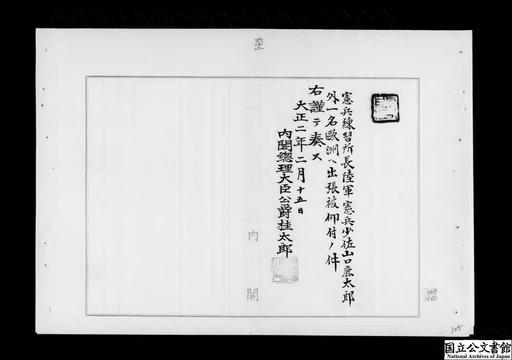 憲兵練習所長陸軍憲兵少佐山口廉太郎
外一名欧洲ヘ出張被仰付ノ件
右謹テ奏ス
大正二年二月十五日
内閣総理大臣公爵桂太郎
内閣
国立公文書館
National Archives of Japan